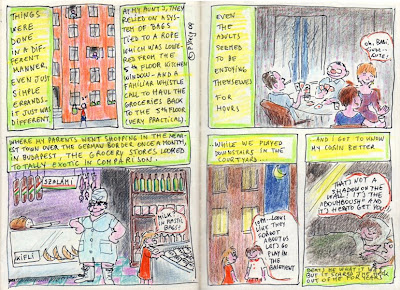 THINGS
WERE
DONE
IN A DIF-
FERENT
MANNER,
EVEN JUST
SIMPLE
ERRANDS.
IT JUST WAS
DIFFERENT.
AT MY AUNT J, THEY
RELIED ON A SYS-
TEM OF BAGS
TIED TO A ROPE
WHICH WAS LOWE-
RED FROM THE
5TH FLOOR KITCHEN
WINDOW - AND A
FAMILIAR WHISTLE
CALL TO HAUL THE
GROCERIES BACK
TO THE 5TH FLOOR
(VERY PRACTICAL).
WHERE MY PARENTS WENT SHOPPING IN THE NEAR-
EST TOWN OVER THE GERMAN BORDER ONCE A MONTH,
IN BUDAPEST, THE GROCERY STORES LOOKED
TOTALLY EXOTIC IN COMPARISON.
SZALÁMI
KIFLI
MILK
IN PLASTIC
BAGS!
EVEN
THE
ADULTS
SEEMED
TO BE
ENJOYING
THEMSELVES
FOR
HOURS
...WHILE WE PLAYED
DOWNSTAIRS IN THE
COURTYARD...
LOOKS
LIKE THEY
FORGOT
ABOUT US
LET'S GO
PLAY IN
THE
BASEMENT
...AND I GOT TO KNOW
MY COSIN BETTER
THAT'S NOT A
SHADOW ON THE
WALL! IT'S THE
ABOUHBOUSH! AND
IT'S HERE TO GET YOU!
BEATS ME WHAT IT WAS
BUT IT SCARED THE
OUT OF ME FOR YEARS